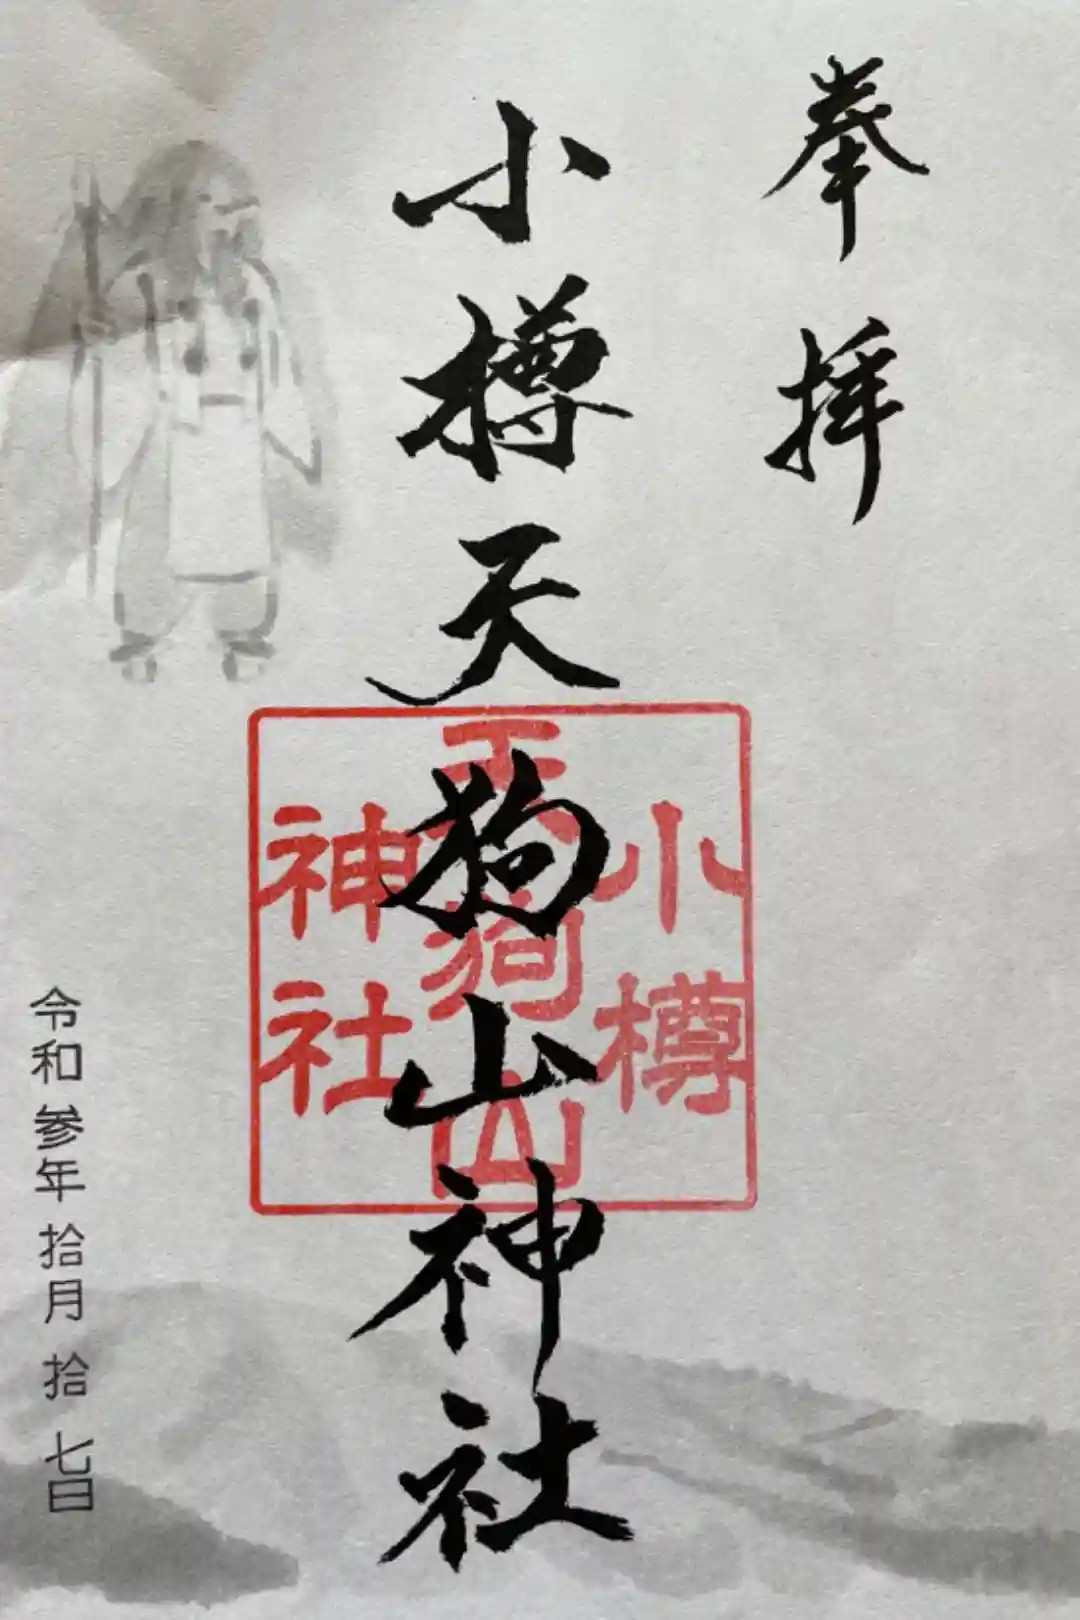 奉拝
小樽天狗山神社
小樽
天狗山
神社
令和参年拾月拾七日